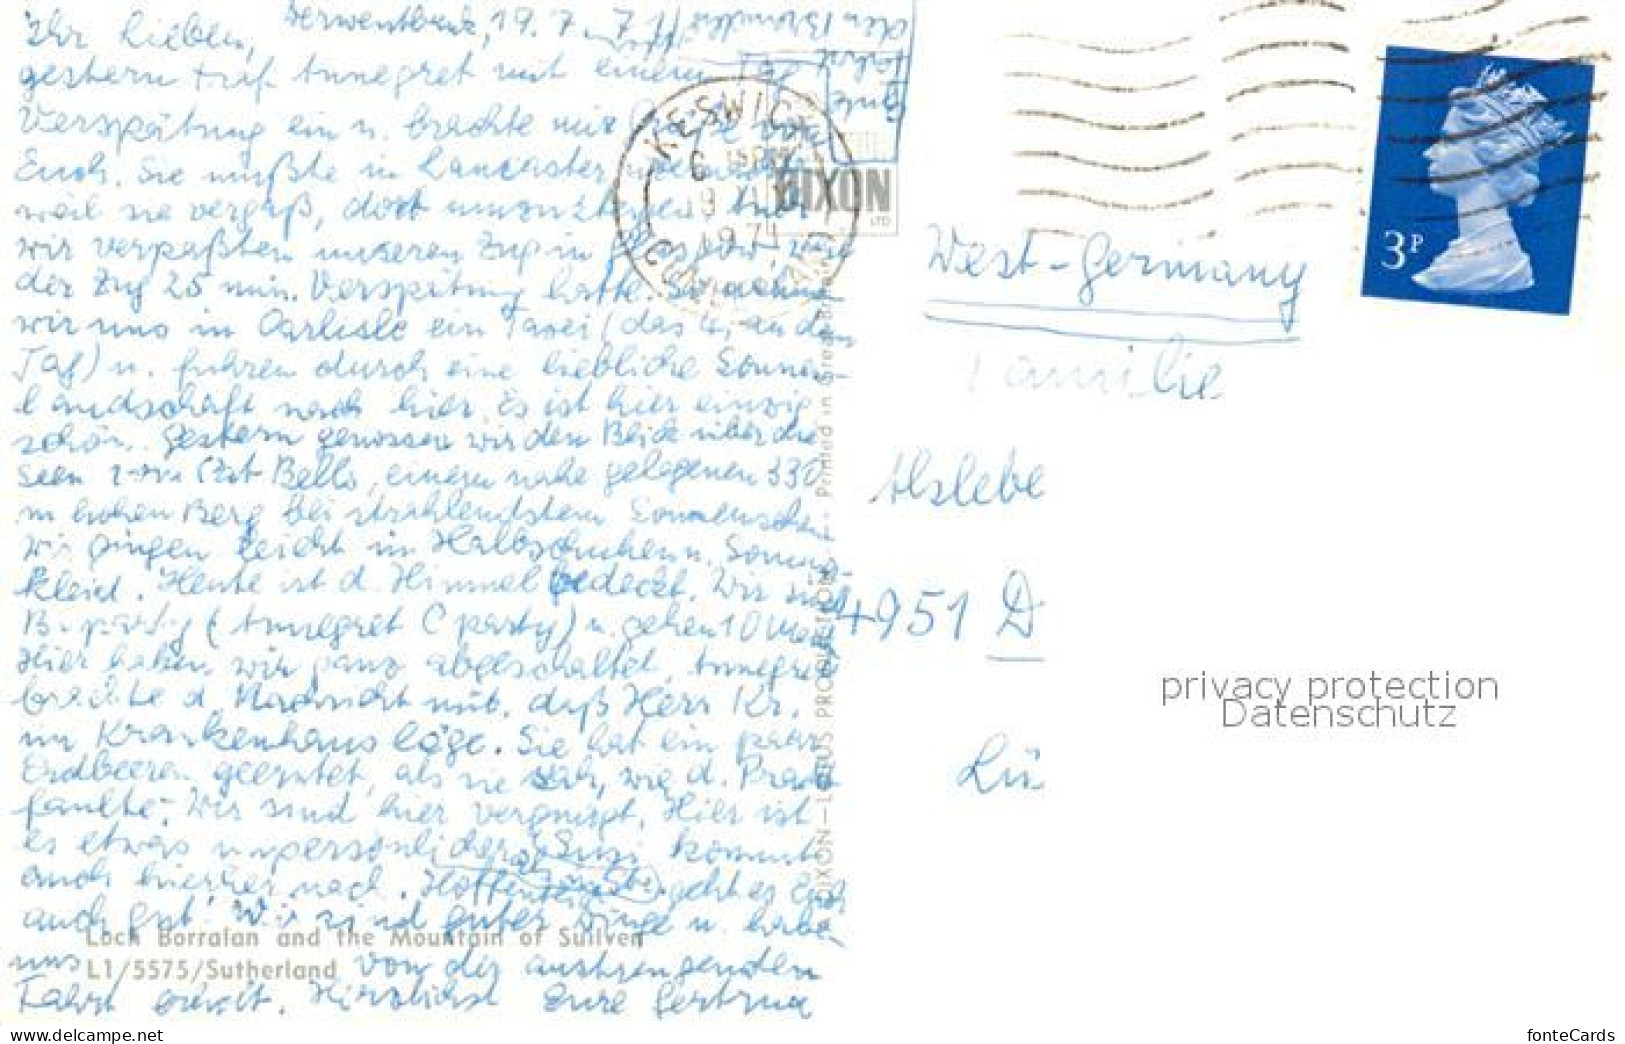 Derwentbank, 19. 7. 71
Ihr Lieben,
gestern traf Annegret mit einem Tag
Verspätung ein u. brachte mir Grüße von
Euch. Sie mußte in Lancaster
weil sie vergaß, dort umzusteigen u.
wir verpaßten unseren Zug in Glasgow, weil
der Zug 25 min. Verspätung hatte. So nahmen
wir uns in Carlisle ein Taxi (das 4. an dem
Tag) u. fuhren durch eine liebliche Sonnen-
landschaft nach hier. Es ist hier einzig
schön. Gestern genossen wir den Blick über die
Seen von Cat Bells, einem nahe gelegenen 330
m hohen Berg bei strahlendstem Sonnenschein
Wir gingen leicht in Halbschuhen u. Sommer-
kleid. Heute ist d. Himmel bedeckt. Wir sind
B. party (Annegret C party) u. gehen 10 Meil.
Hier haben wir ganz abgeschaltet. Annegret
brachte d. Nachricht mit, daß Herr Kr.
im Krankenhaus läge. Sie hat ein paar
Erdbeeren geerntet, als sie sah, wie d. Pracht
faulte. Wir sind hier vergnügt. Hier ist
es etwas unpersönlicher. Susi kommt
auch hierher nach. Hoffentlich geht es Euch
auch gut! Wir sind guter Dinge u. haben
uns von der anstrengenden
Fahrt erholt. Herzlichst Eure Gertrud
Loch Borralan and the Mountain of Suilven
L1/5575/Sutherland
KESWICK
6 15PM
19 JLY
1971
CUMBERLAND
DIXON
LTD.
DIXON—LOTUS PRODUCTIONS — Printed in Great Britain
3P
West-Germany
Familie
Alslebe
4951 D
Lü
privacy protection
Datenschutz
www.delcampe.net
fonteCards